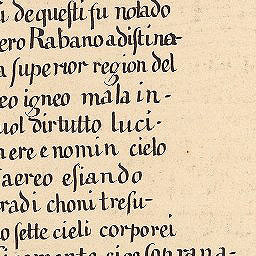 i de questi fu notado
ero Rabano a distina-
a superior region del
eo igneo ma la in-
uol dir tutto luci-
nere e nomin cielo
aereo esiando
radi choni tresu-
o sette cieli corporei